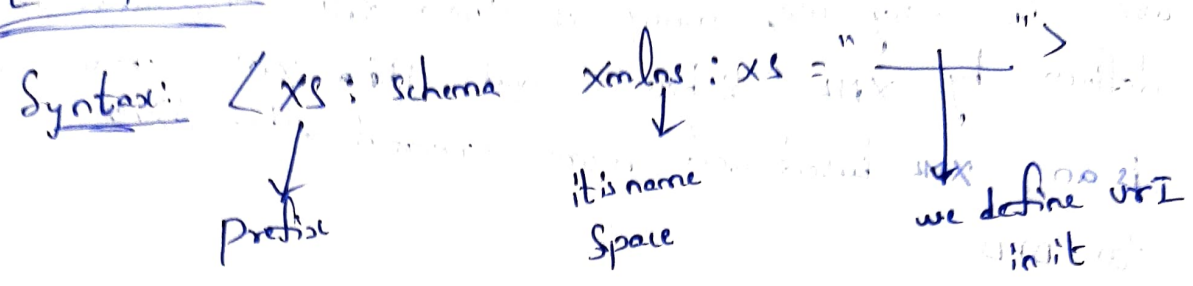 Syntax: <xs: schema xmlns: xs = " ">
prefix
it is name
space
we define urI
in it